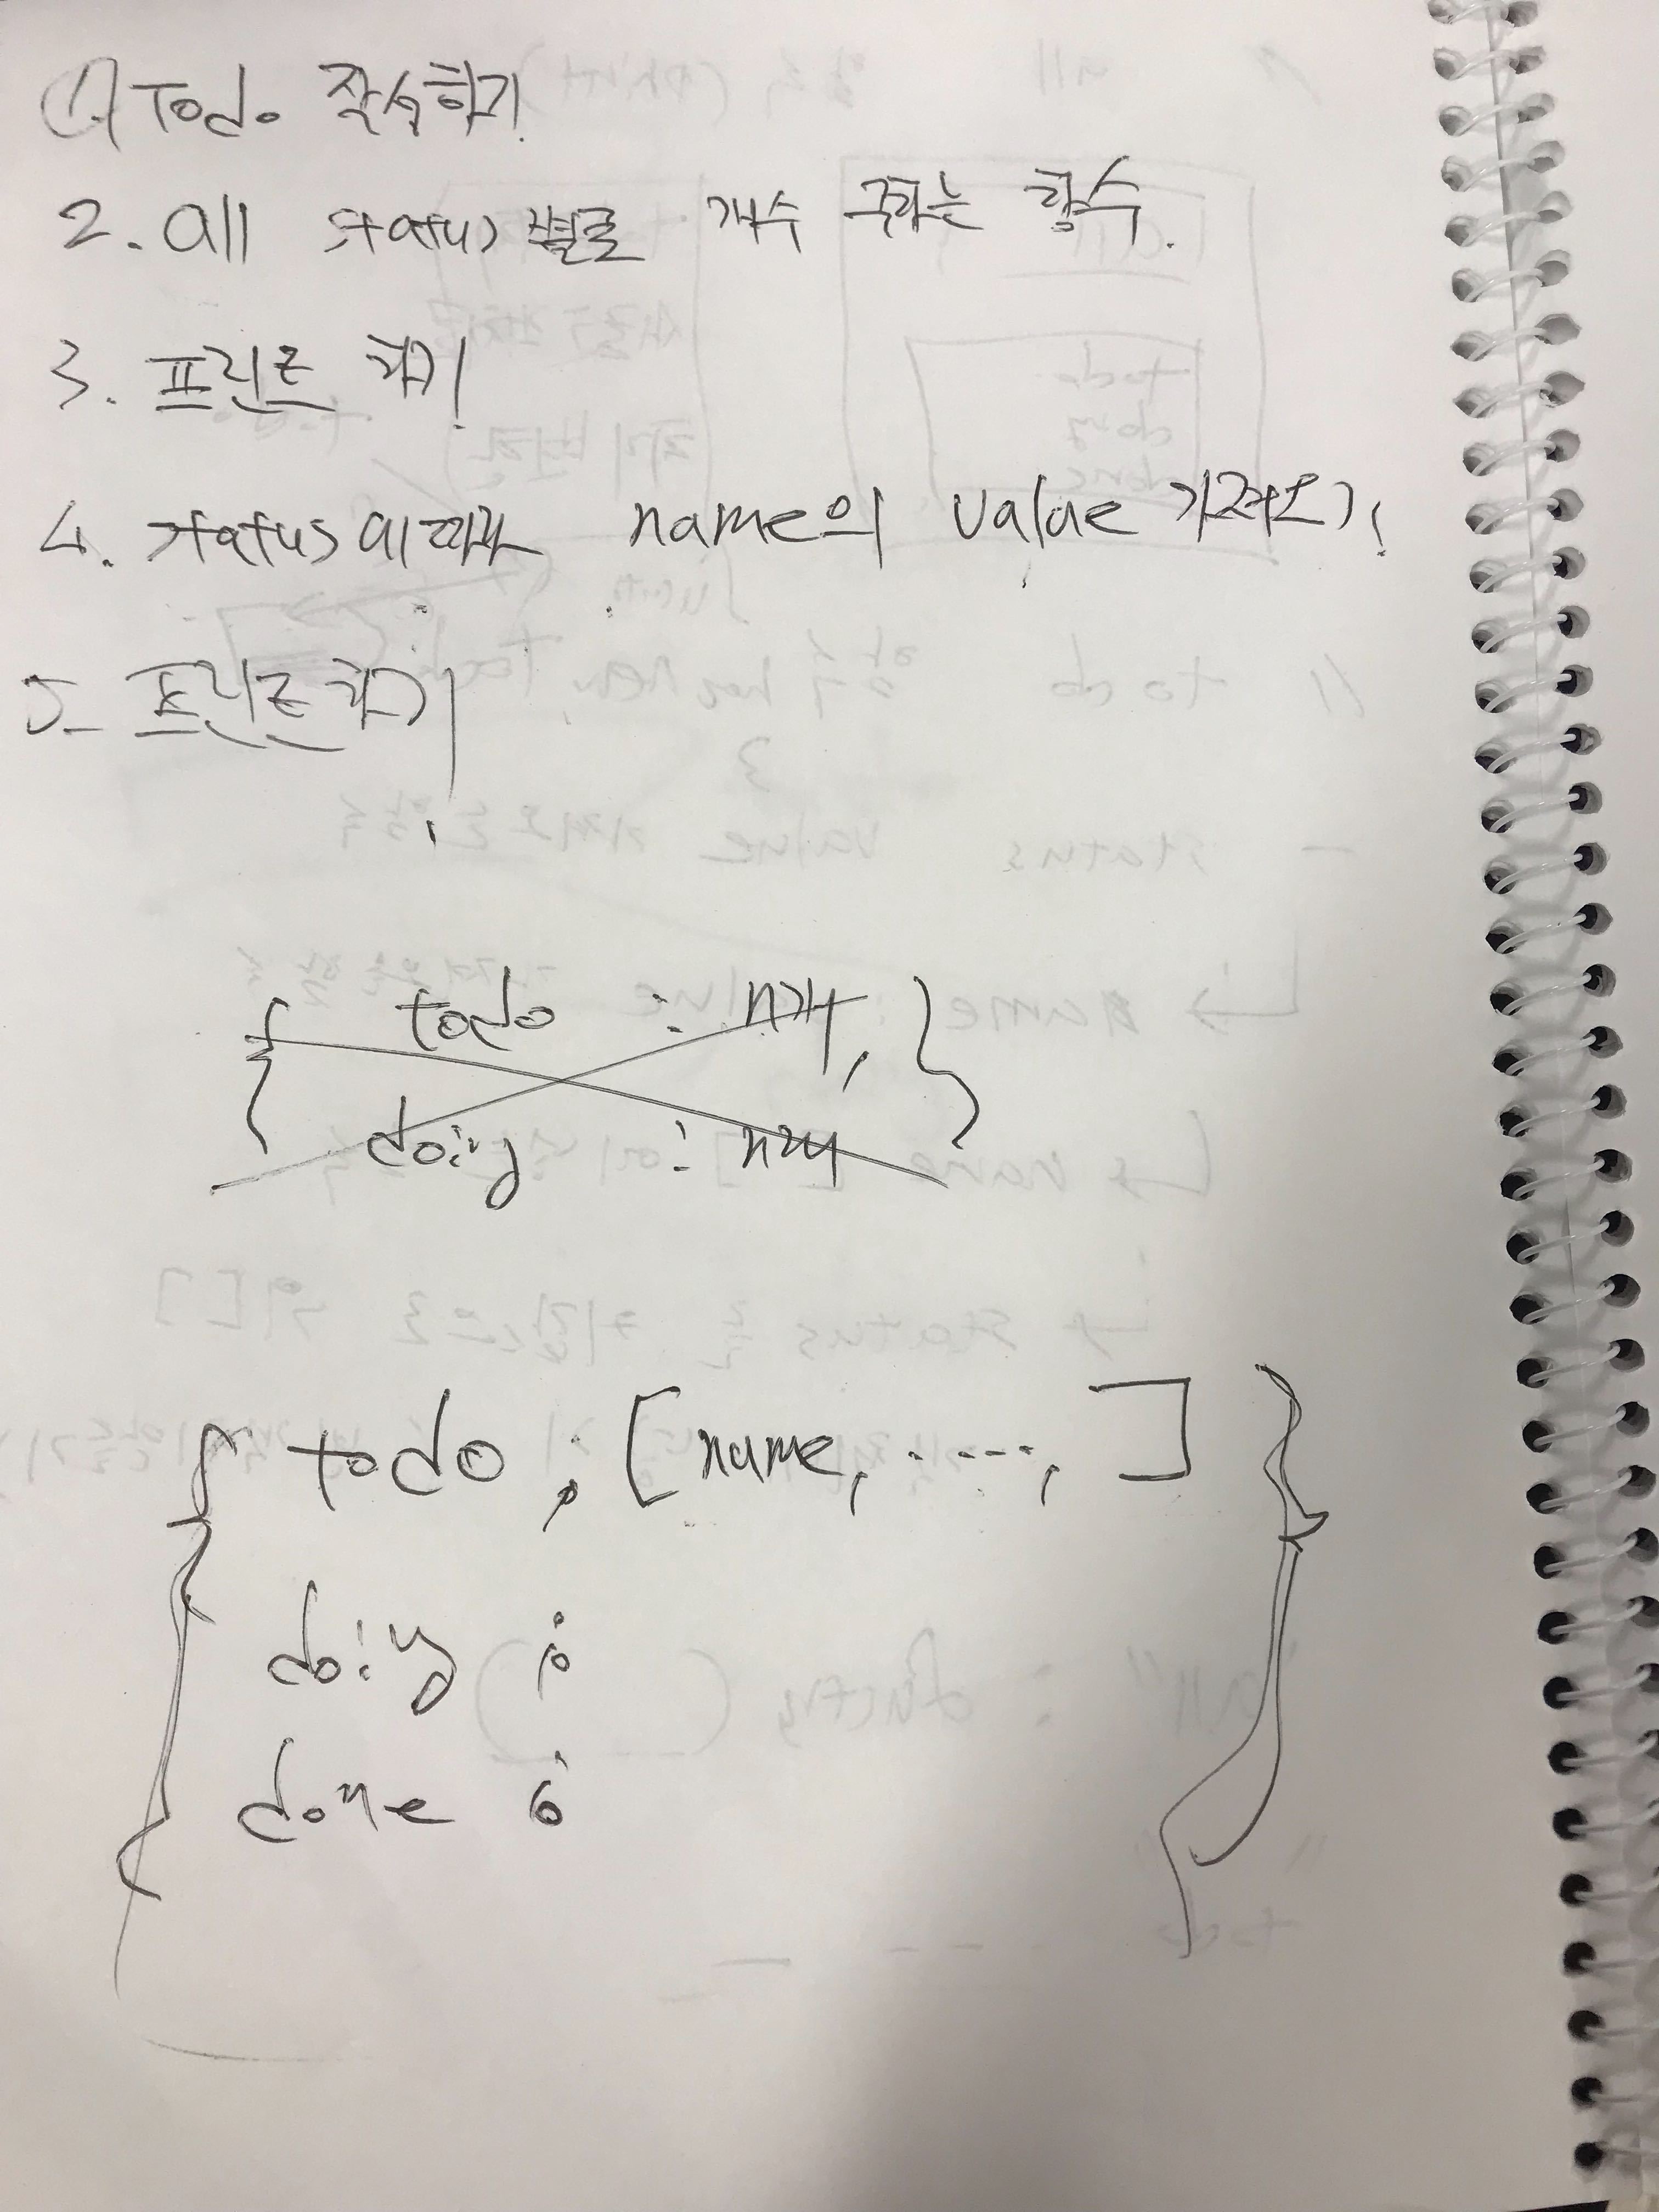 1. Todo 작성하기!
2. all status 별로 개수 구하는 함수.
3. 프린트 하기!
4. status에 따라 name의 value 가져오기!
5. 프린트 하기!
{ todo : n개, }
doing : n개
{ todo : [name, ...., ] }
doing :
done :